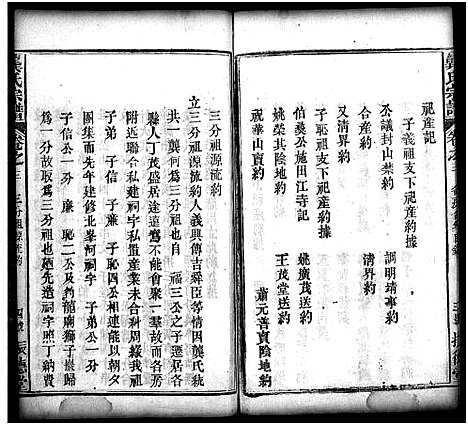 龔氏宗譜
卷首之三
祀產記
子義祖支下祀產約據
公議封山禁約
調明靖事約
又清界約
清界約
子恥祖支下祀產約據
伯奠公施田江寺記
姚廣茂送約
姚榮其陰地約
王茂堂送約
祝華山賣約
蕭元善賣陰地約
立三分祖源流約人義興傳吉緯臣等情因龔氏統
共一龔何爲三分祖也自 福三公之子遷居各
縣人丁茂盛居途遙篤不能會聚一羣故而各有
附近聯合私建祠宇私置產業未合歸周緣我祖
子弟 子信 子廉 子恥四公相連能以成
團集而先年建修北峯河祠宇 子弟公一分
子信公一分 廉 恥二公及約龍廟獅子巖歸
爲一分故以爲三分祖也越先遺祠宇照丁納費
龔氏宗譜
卷首之三
三分祖源流約